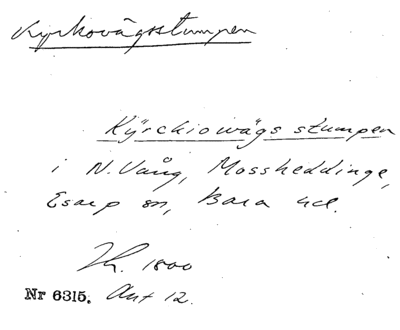 Kyrkovägsstumpen
Kÿrckiowägs stumpen
i N. Vång, Mossheddinge,
Esarp sn, Bara hd.
Lh. 1800
Nr 6315. Akt 12.